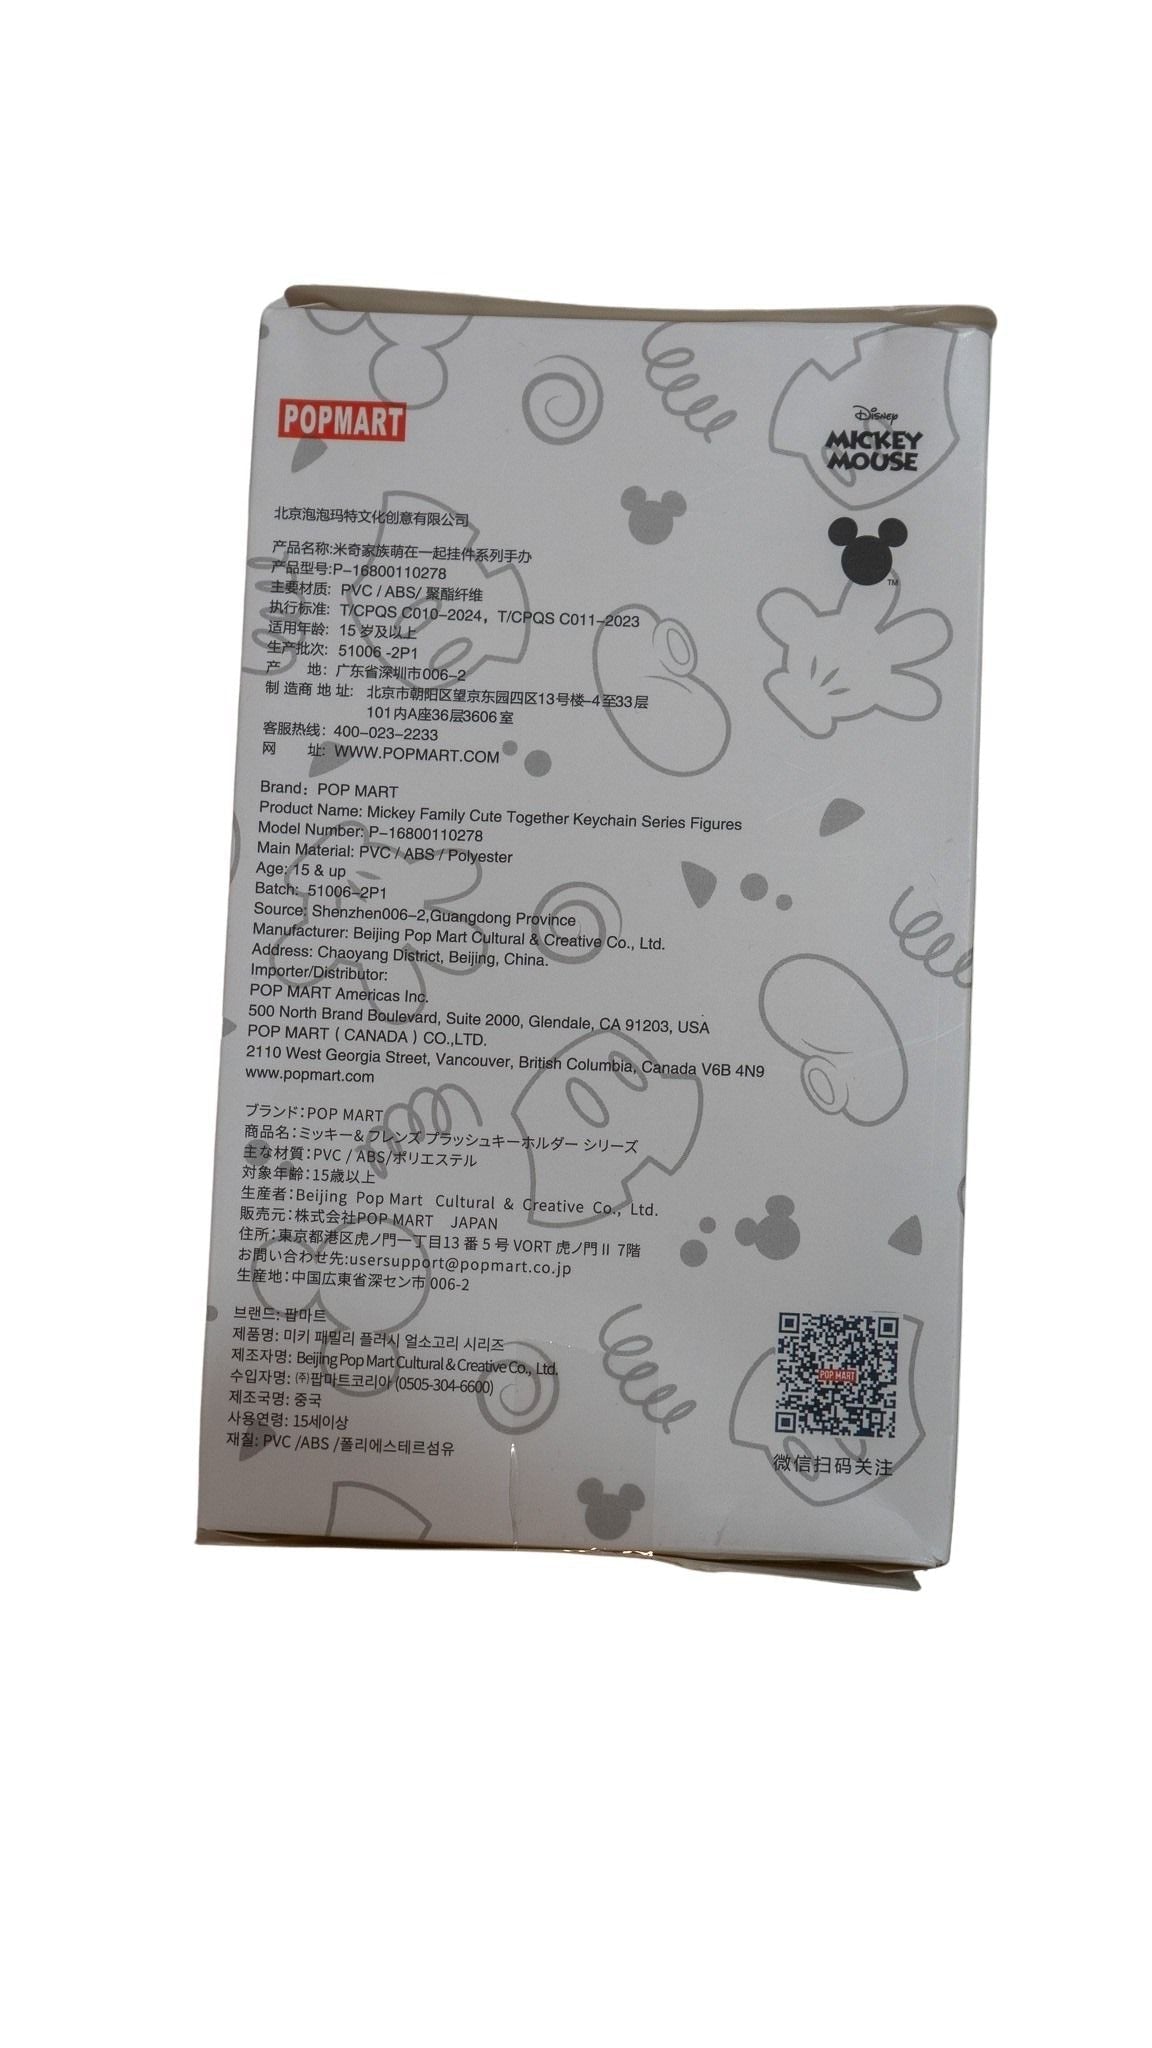 POPMART
Disney
MICKEY
MOUSE
TM
北京泡泡玛特文化创意有限公司
产品名称:米奇家族萌在一起挂件系列手办
产品型号:P-16800110278
主要材质: PVC / ABS/ 聚酯纤维
执行标准: T/CPQS C010-2024, T/CPQS C011-2023
适用年龄: 15 岁及以上
生产批次: 51006 -2P1
产 地: 广东省深圳市006-2
制 造商 地 址: 北京市朝阳区望京东园四区13号楼-4至33层
101内A座36层3606室
客服热线: 400-023-2233
网 址: WWW.POPMART.COM
Brand: POP MART
Product Name: Mickey Family Cute Together Keychain Series Figures
Model Number: P-16800110278
Main Material: PVC / ABS / Polyester
Age: 15 & up
Batch: 51006-2P1
Source: Shenzhen006-2,Guangdong Province
Manufacturer: Beijing Pop Mart Cultural & Creative Co., Ltd.
Address: Chaoyang District, Beijing, China.
Importer/Distributor:
POP MART Americas Inc.
500 North Brand Boulevard, Suite 2000, Glendale, CA 91203, USA
POP MART ( CANADA ) CO.,LTD.
2110 West Georgia Street, Vancouver, British Columbia, Canada V6B 4N9
www.popmart.com
ブランド:POP MART
商品名:ミッキー& フレンズ プラッシュキーホルダー シリーズ
主な材質:PVC / ABS/ポリエステル
対象年齢:15歳以上
生産者:Beijing Pop Mart Cultural & Creative Co., Ltd.
販売元:株式会社POP MART JAPAN
住所:東京都港区虎ノ門一丁目13 番 5 号 VORT 虎ノ門 II 7階
お問い合わせ先:usersupport@popmart.co.jp
生産地:中国広東省深セン市 006-2
브랜드: 팝마트
제품명: 미키 패밀리 플러시 얼소고리 시리즈
제조자명: Beijing Pop Mart Cultural & Creative Co., Ltd.
수입자명: ㈜팝마트코리아 (0505-304-6600)
제조국명: 중국
사용연령: 15세이상
재질: PVC /ABS /폴리에스테르섬유
POP MART
微信扫码关注